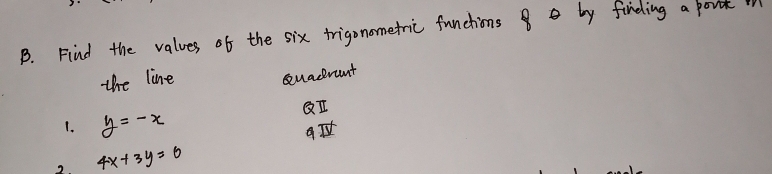 B. Find the values of the six trigonometric functions of θ by finding a point in
the line Quadrant
1. y = -x QII
2. 4x + 3y = 0 QIV